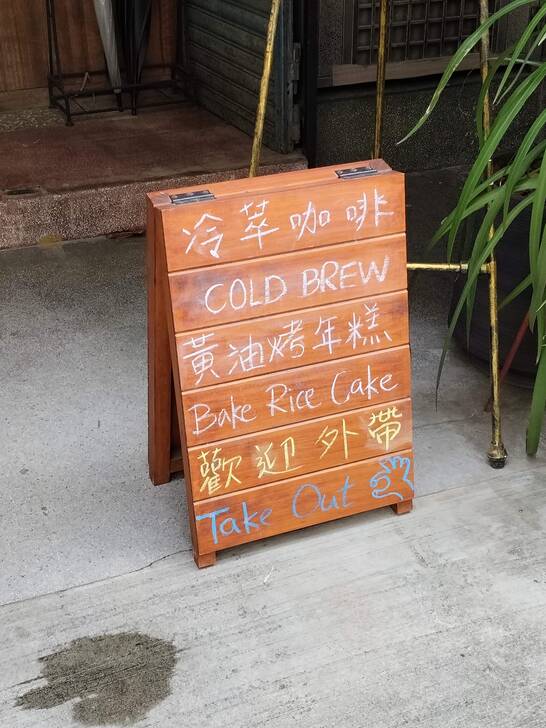 冷萃咖啡
COLD BREW
黃油烤年糕
Bake Rice Cake
歡迎外帶
Take Out